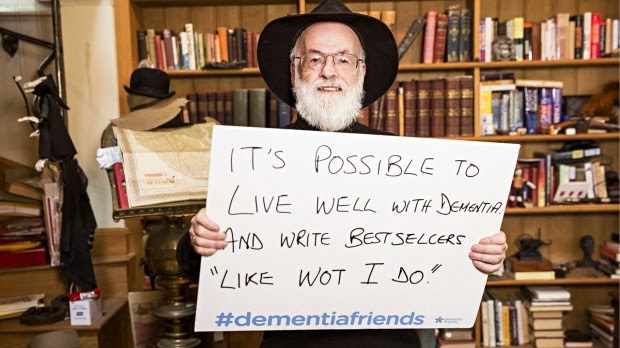 IT'S POSSIBLE TO
LIVE WELL WITH DEMENTIA.
AND WRITE BESTSELLERS
"LIKE WOT I DO."
#dementiafriends